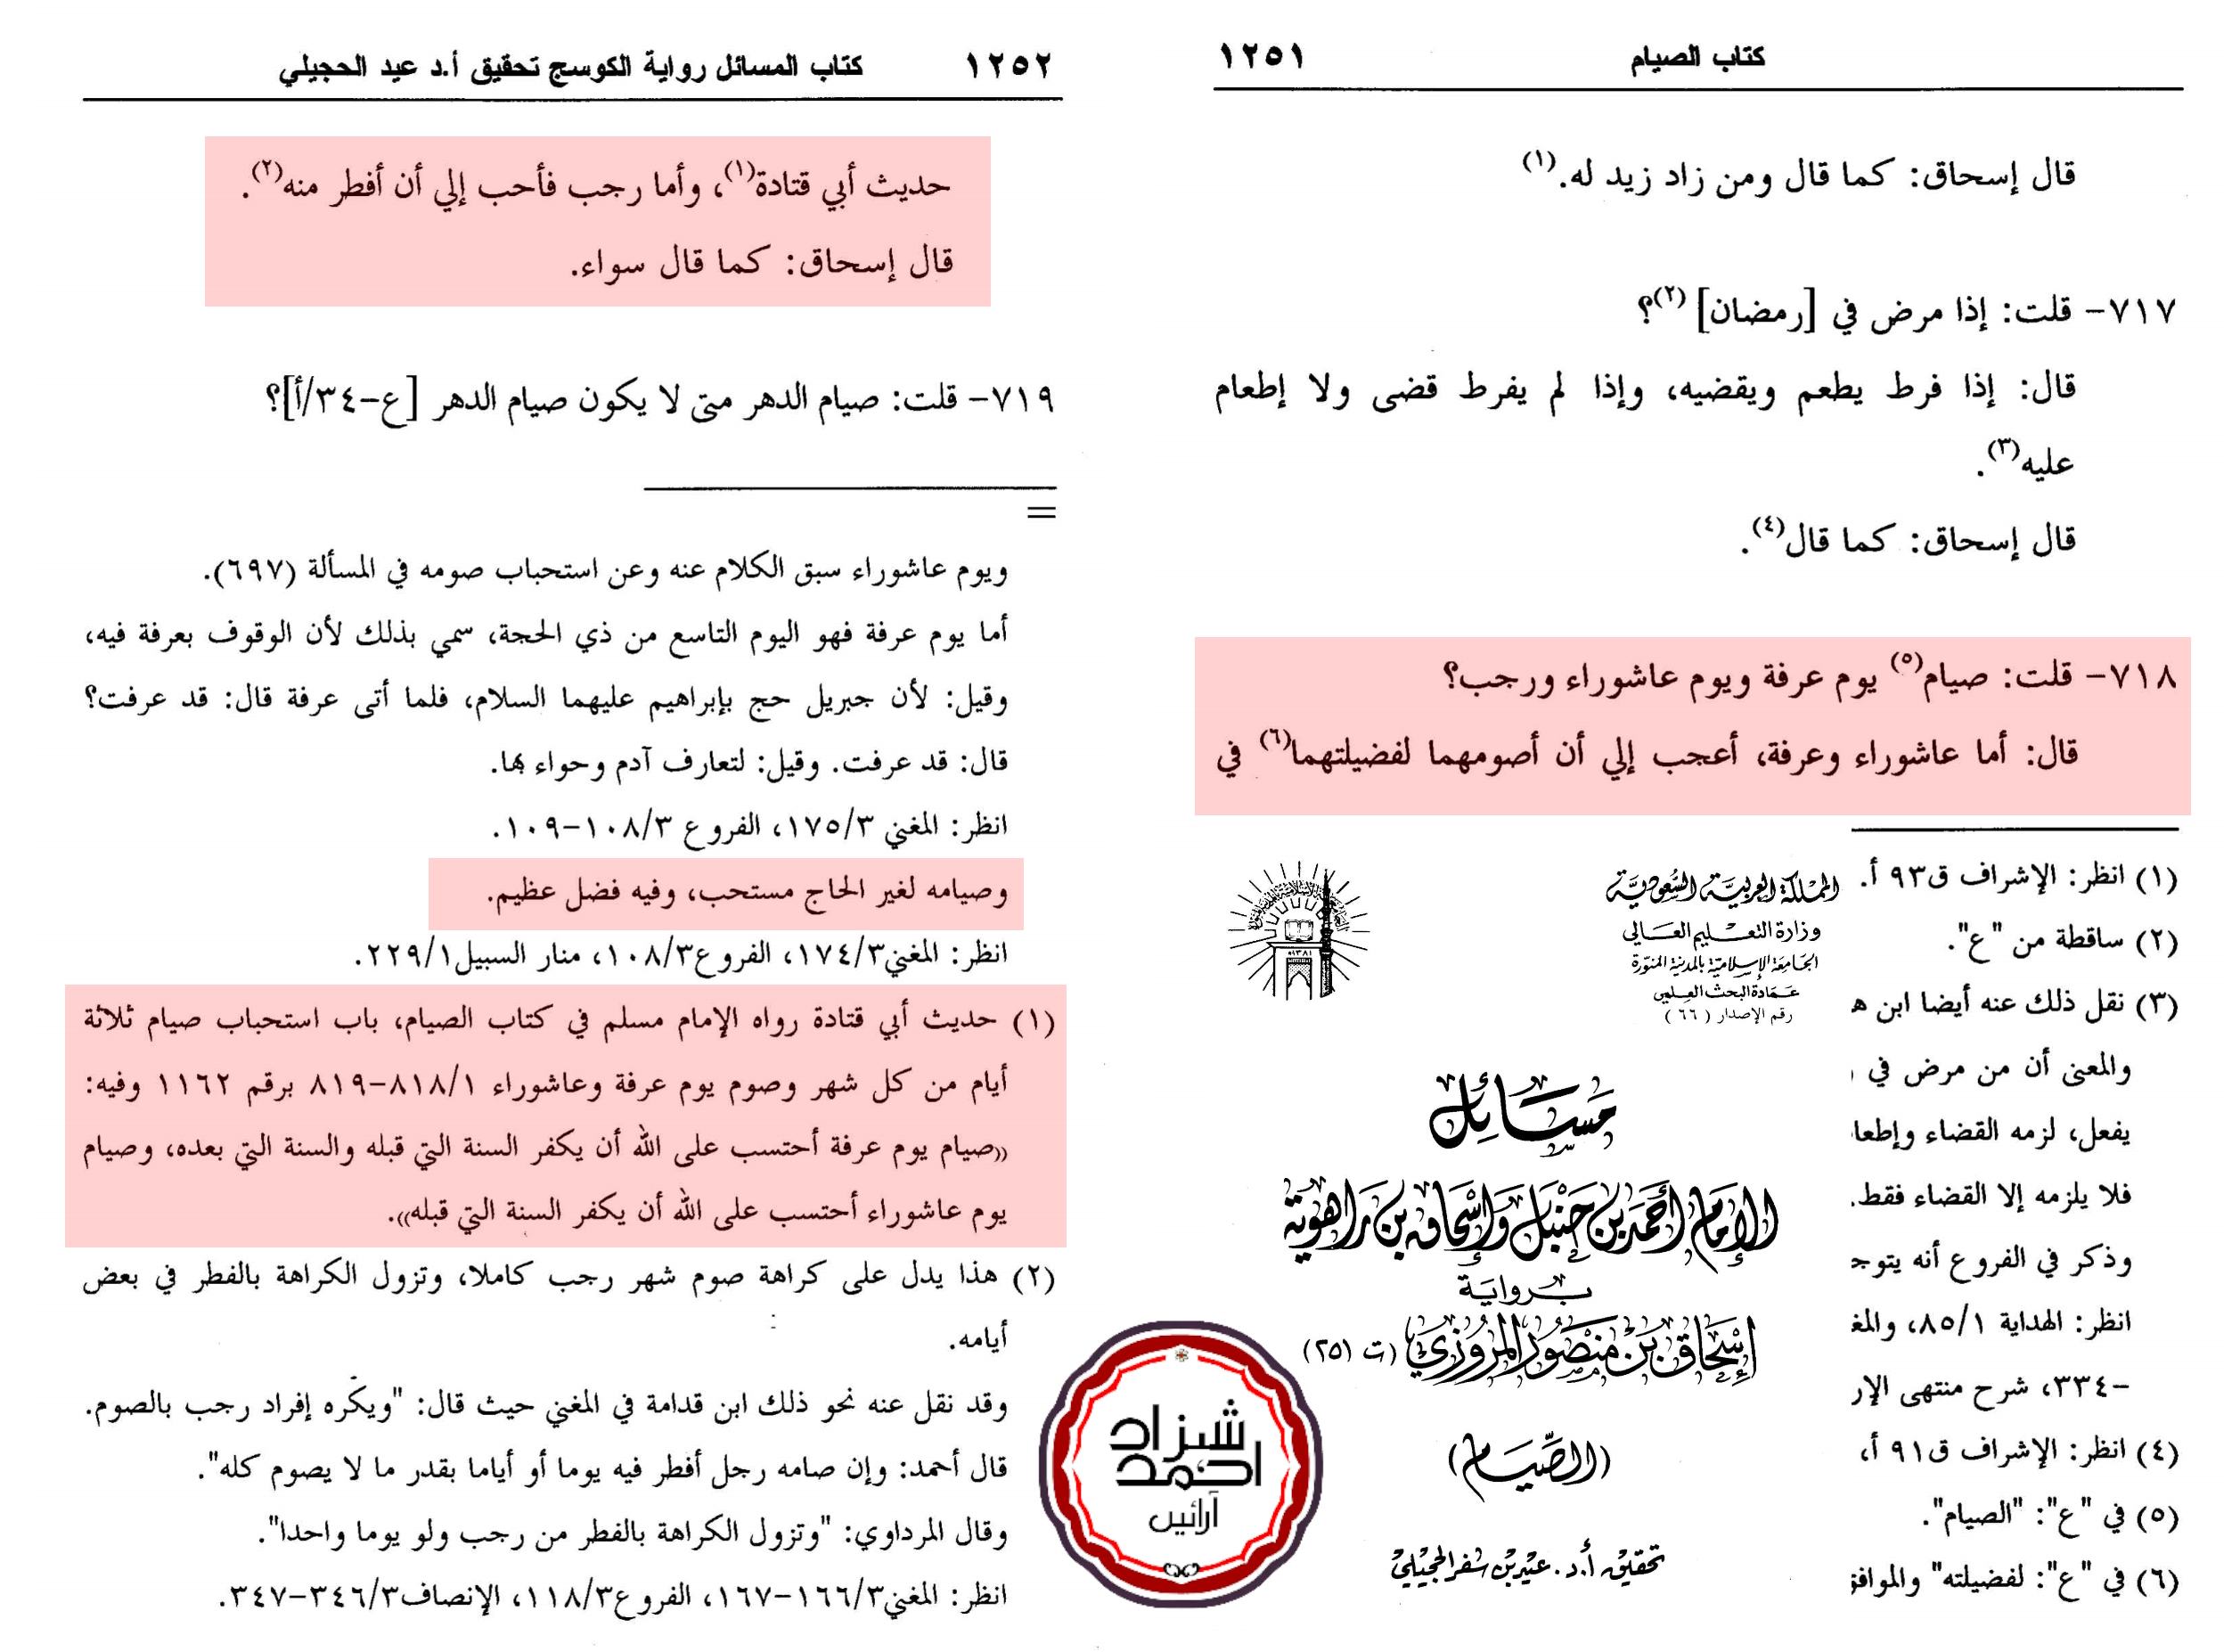 كتاب الصيام ١٢٥١
قال إسحاق: كما قال ومن زاد زيد له.(١)
٧١٧- قلت: إذا مرض في [رمضان] (٢)؟
قال: إذا فرط يطعم ويقضيه، وإذا لم يفرط قضى ولا إطعام
عليه(٣).
قال إسحاق: كما قال(٤).
٧١٨- قلت: صيام(٥) يوم عرفة ويوم عاشوراء ورجب؟
قال: أما عاشوراء وعرفة، أعجب إلي أن أصومهما لفضيلتهما(٦) في
(١) انظر: الإشراف ق٩٣ أ.
(٢) ساقطة من "ع".
(٣) نقل ذلك عنه أيضا ابن ه
والمعنى أن من مرض في
يفعل، لزمه القضاء وإطعا
فلا يلزمه إلا القضاء فقط.
وذكر في الفروع أنه يتوج
انظر: الهداية ٨٥/١، والمغ
-٣٣٤، شرح منتهى الإر
(٤) انظر: الإشراف ق٩١ أ،
(٥) في "ع": "الصيام".
(٦) في "ع": لفضيلته" والموافق
المملكة العربية السعودية
وزارة التعليم العالي
الجامعة الإسلامية بالمدينة المنورة
عمادة البحث العلمي
رقم الإصدار ( ٦٦ )
مسائل
الإمام أحمد بن حنبل وإسحاق بن راهويه
برواية
إسحاق بن منصور المروزي (ت ٢٥١)
(الصيام)
تحقيق أ.د. عيد بن سفر الحجيلي
شیزاد
احمد
آرائیں
١٢٥٢ كتاب المسائل رواية الكوسج تحقيق أ.د عيد الحجيلي
حديث أبي قتادة(١)، وأما رجب فأحب إلي أن أفطر منه(٢).
قال إسحاق: كما قال سواء.
٧١٩- قلت: صيام الدهر متى لا يكون صيام الدهر [ع-٣٤/أ]؟
=
ويوم عاشوراء سبق الكلام عنه وعن استحباب صومه في المسألة (٦٩٧).
أما يوم عرفة فهو اليوم التاسع من ذي الحجة، سمي بذلك لأن الوقوف بعرفة فيه،
وقيل: لأن جبريل حج بإبراهيم عليهما السلام، فلما أتى عرفة قال: قد عرفت؟
قال: قد عرفت. وقيل: لتعارف آدم وحواء بها.
انظر: المغني ١٧٥/٣، الفروع ١٠٨/٣-١٠٩.
وصيامه لغير الحاج مستحب، وفيه فضل عظيم.
انظر: المغني١٧٤/٣، الفروع١٠٨/٣، منار السبيل٢٢٩/١.
(١) حديث أبي قتادة رواه الإمام مسلم في كتاب الصيام، باب استحباب صيام ثلاثة
أيام من كل شهر وصوم يوم عرفة وعاشوراء ٨١٨/١-٨١٩ برقم ١١٦٢ وفيه:
«صيام يوم عرفة أحتسب على الله أن يكفر السنة التي قبله والسنة التي بعده، وصيام
يوم عاشوراء أحتسب على الله أن يكفر السنة التي قبله».
(٢) هذا يدل على كراهة صوم شهر رجب كاملا، وتزول الكراهة بالفطر في بعض
أيامه.
وقد نقل عنه نحو ذلك ابن قدامة في المغني حيث قال: "ويكره إفراد رجب بالصوم.
قال أحمد: وإن صامه رجل أفطر فيه يوما أو أياما بقدر ما لا يصوم كله".
وقال المرداوي: "وتزول الكراهة بالفطر من رجب ولو يوما واحدا".
انظر: المغني١٦٦/٣-١٦٧، الفروع١١٨/٣، الإنصاف٣٤٦/٣-٣٤٧.